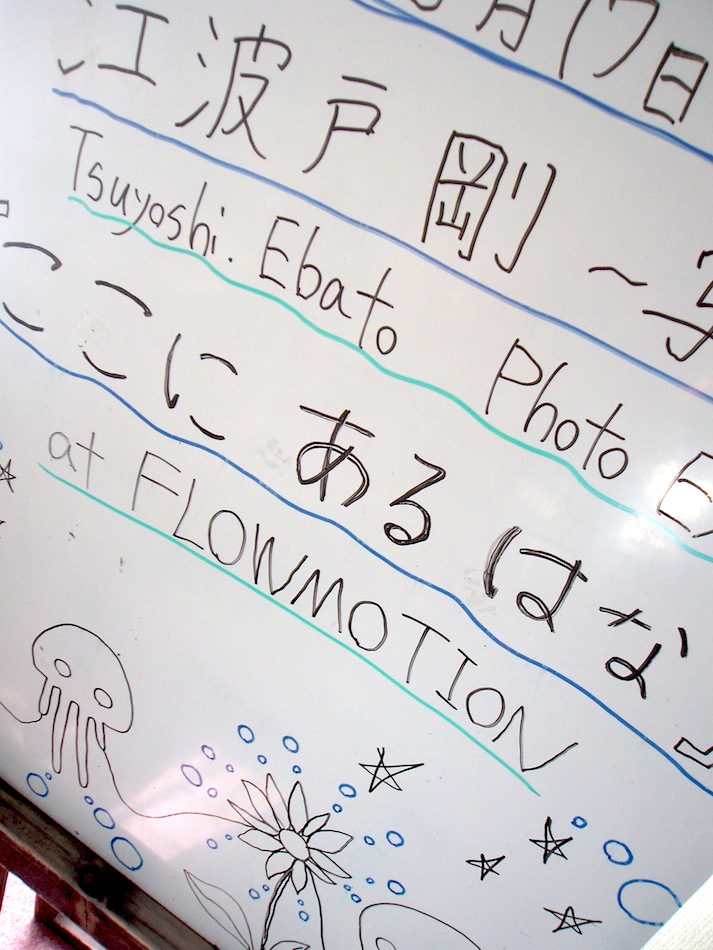 月17日
江波戸 剛 ~写
Tsuyoshi. Ebato Photo E
『ここに ある はな』
at FLOWMOTION